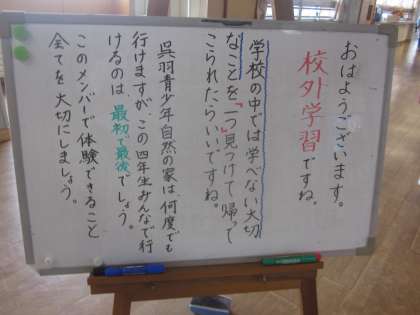 おはようございます。
校外学習ですね。
学校の中では学べない大切
なことを「一つ」見つけて帰って
こられたらいいですね。
呉羽青少年自然の家は、何度でも
行けますが、この四年生みんなで行
けるのは、最初で最後でしょう。
このメンバーで体験できること
全てを大切にしましょう。